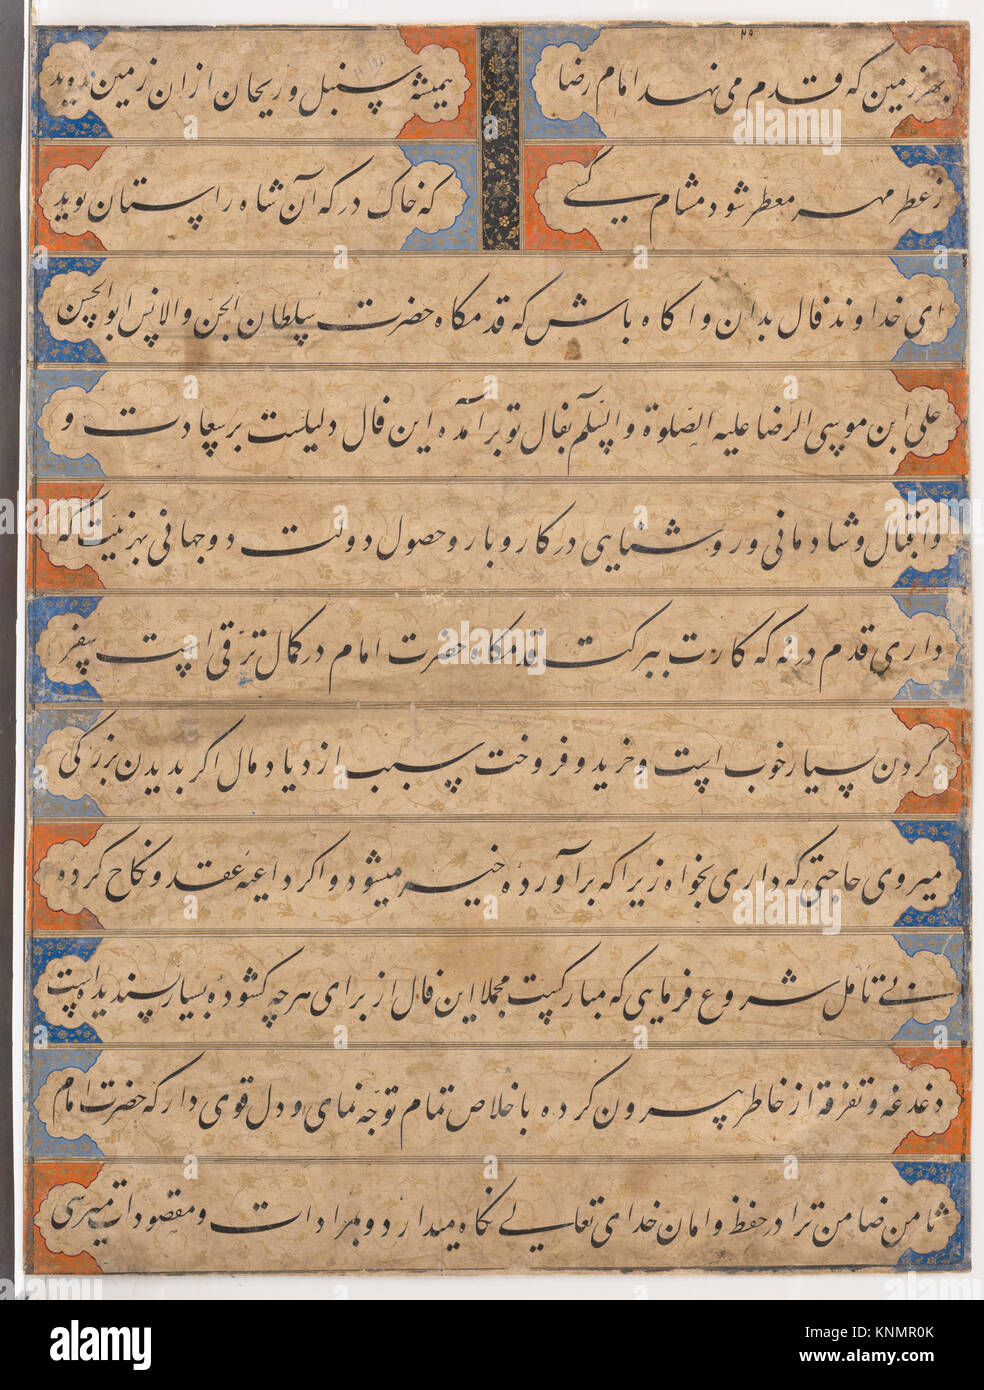 ۲۵
بهر زمین که قدم می نهد امام رضا
همیشه سنبل و ریحان ازان زمین روید
ز عطر مهر معطر شود مشام کسی
که خاک درکه آن شاه راستان بوید
ای خداوند فال بدان و اکاه باش که قدمکاه حضرت سلطان الجن والانس ابوالحسن
علی ابن موسی الرضا علیه الصلوة والسلم بفال تو برآمده این فال دلیلست بر سعادت و
و اقبال و شادمانی و روشنایی در کار و بار و حصول دولت دو جهانی بهر نیت که
داری قدم درنه که کارت ببرکت قدمکاه حضرت امام در کمال ترقی است سفر
کردن بسیار خوب است و خرید و فروخت سبب ازدیاد مال اکر بدیدن بزرکی
میروی حاجتی که داری بخواه زیرا که برآورده خیر میشود و اکر داعیه عقد و نکاح کرده
بی تأمل شروع فرمایی که مبارکست مجملا این فال از برای هرچه کشوده بسیار پسندیده است
دغدغه و تفرقه از خاطر بیرون کرده باخلاص تمام توجه نمای و دل قوی دار که حضرت امام
ثامن ضامن ترا در حفظ و امان خدای تعالی نکاه میدارد و بمرادات و مقصودات میرسی
alamy stock photo
KNMR0K
www.alamy.com